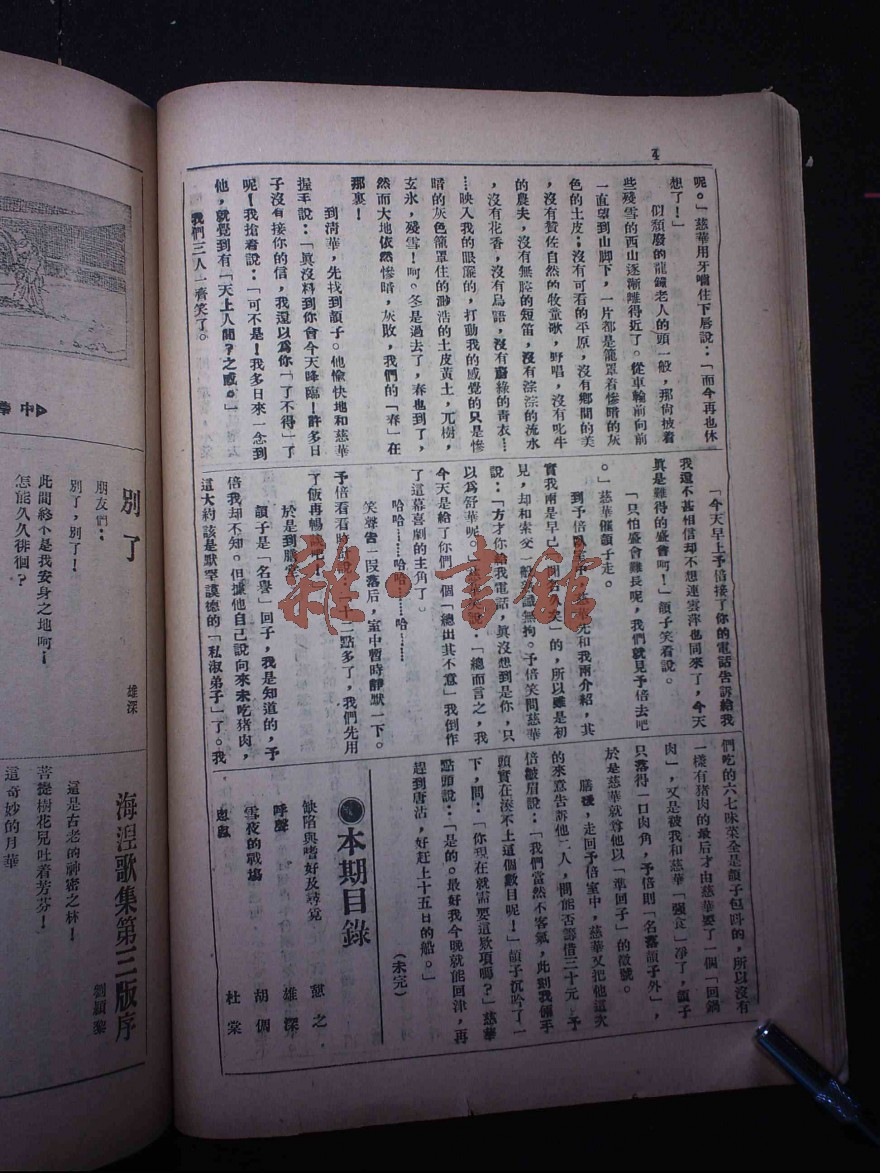 4
呢。」慈華用牙嚙住下唇說：「而今再也休
想了！」
似頹廢的龍鐘老人的頭一般，那倘披着
些殘雪的西山逐漸離得近了。從車輪前向前
一直望到山脚下，一片都是籠罩着慘暗的灰
色的土皮；沒有可看的平原，沒有鄉間的美
，沒有贊佐自然的牧童歌，野唱，沒有叱牛
的農夫，沒有無腔的短笛，沒有淙淙的流水
，沒有花香，沒有鳥語，沒有綠的靑衣…
…映入我的眼簾的，打動我的感覺的只是慘
暗的灰色籠罩住的渺浩的土皮黃土，兀樹，
玄氷，殘雪！呵。冬是過去了，春也到了，
然而大地依然慘暗，灰敗，我們的「春」在
那裏！
到清華，先找到韻子。他愉快地和慈華
握手說：「眞沒料到你會今天降臨！許多日
子沒有接你的信，我還以爲你「了不得」了
呢！我搶着說：「可不是！我多日來一念到
他，就覺到有「天上人間？之感。」
我們三人一齊笑了。
「今天早上予倍接了你的電話告訴給我
我還不甚相信却不想連雲萍也同來了，今天
眞是難得的盛會呵！」韻子笑着說。
「只怕盛會難長呢，我們就見予倍去吧
。」慈華催韻子走。
到予倍臥室中，慈華先和我兩介紹，其
實我兩是早已「聞名久矣」的，所以雖是初
見，却和素交一般熟識無拘。予倍笑問慈華
說：「方才你給我電話，眞沒想到是你，只
以爲舒華呢。」慈華笑說：「總而言之，我
今天是給了你們一個「總出其不意」我倒作
了這幕喜劇的主角了。
哈哈……哈哈……哈……
笑聲告一段落后，室中暫時靜默一下。
予倍看看時計說：「十二點多了，我們先用
了飯再暢談吧！」
於是到膳堂。
韻子是「名譽」回子，我是知道的，予
倍我却不知。但據他自己說向來未吃猪肉，
這大約該是默罕謨德的「私淑弟子」了。我
們吃的六七味菜全是韻子包辦的，所以沒有
一樣有猪肉的最后才由慈華要了一個「回鍋
肉」，又是被我和慈華「强食」凈了，韻子
只落得一口肉角，予倍則「名落韻子外」，
於是慈華就尊他以「準回子」的徵號。
膳後，走回予倍室中，慈華又把他這次
的來意告訴他二人，問能否籌借三十元，予
倍皺眉說：「我們當然不客氣，此刻我倆手
頭實在湊不上這個數目呢！」韻子沉吟了一
下，問：「你現在就需要這欵項嗎？」慈華
點頭說：「是的。最好我今晚就能回津，再
趕到唐沽，好赶上十五日的船。」
（未完）
本期目錄
缺陷與嗜好及尋覓 憩之
呼聲 雄深
雪夜的戰場 胡倜
杜棠
別了
雄深
朋友們：
別了，別了！
此間終不是我安身之地呵！
怎能久久徘徊？
海湼歌集第三版序
劉穎黎
這是古老的神密之林！
菩提樹花兒吐着芬芳！
這奇妙的月華